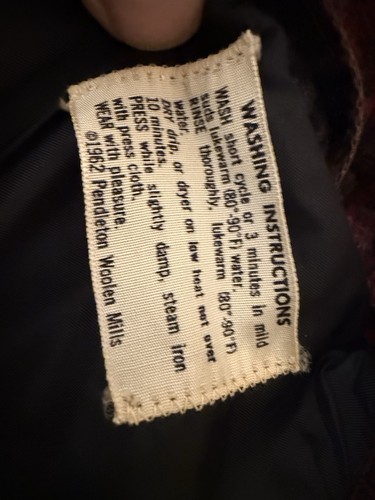 WASHING INSTRUCTIONS
WASH short cycle of 3 minutes in mild
suds lukewarm (80°-90°F) water.
RINSE thoroughly, lukewarm (80°-90°F)
water.
DRY drip, or dryer on low heat not over
10 minutes.
PRESS while slightly damp, steam iron
with press cloth.
WEAR with pleasure.
©1962 Pendleton Woolen Mills